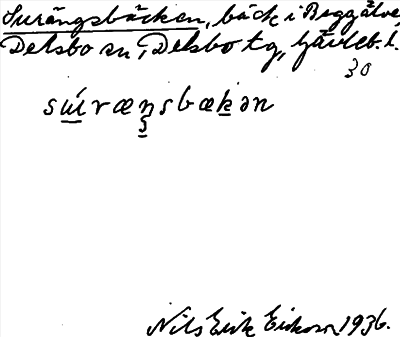 Surängsbäcken, bäck i Beggälve,
Delsbo sn, Delsbo tg, Gävleb. l.
30
súrængsbækən
Nils Erik Erikson 1936.